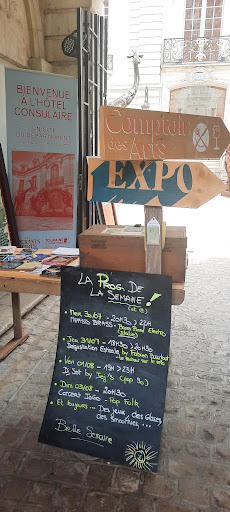 BIENVENUE À
L'HÔTEL
CONSULAIRE
UN SITE DU DÉPARTEMENT
Comptoir
des Arts
EXPO
LA PROG. DE
LA SEMAINE !
Mer 30/07 - 20H30 > 22H
Jeu 31/07 - 18H30 > 20H30
Dégustation Estivale by Fabien
Ven 01/08 - 19H > 23H
Dj Set by
Dim 03/08 - 20H30
Concert JoGo - Pop Folk
Et toujours ... Des jeux, des Glaces,
Des Smoothies, ...
Belle Semaine